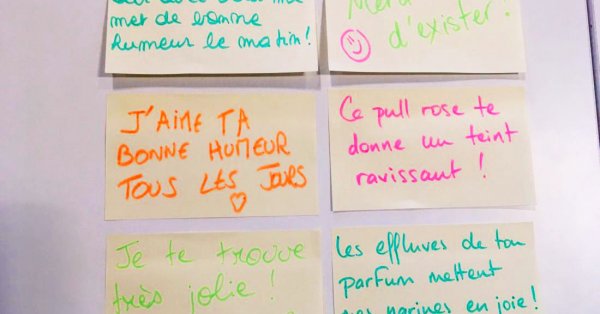 met de bonne
humeur le matin !
Merci
d'exister !
J'AIME TA
BONNE HUMEUR
TOUS LES JOURS
Ce pull rose te
donne un teint
ravissant !
Je te trouve
très jolie !
Les effluves de ton
parfum mettent
mes narines en joie !